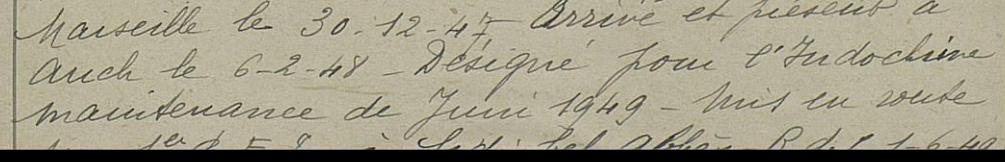 Marseille le 30-12-47 Arrivé et présent à
Auch le 6-2-48 - Désigné pour l'Indochine
maintenance de Juin 1949 - Mis en route
1er Sidi bel Abbès 1-6-49